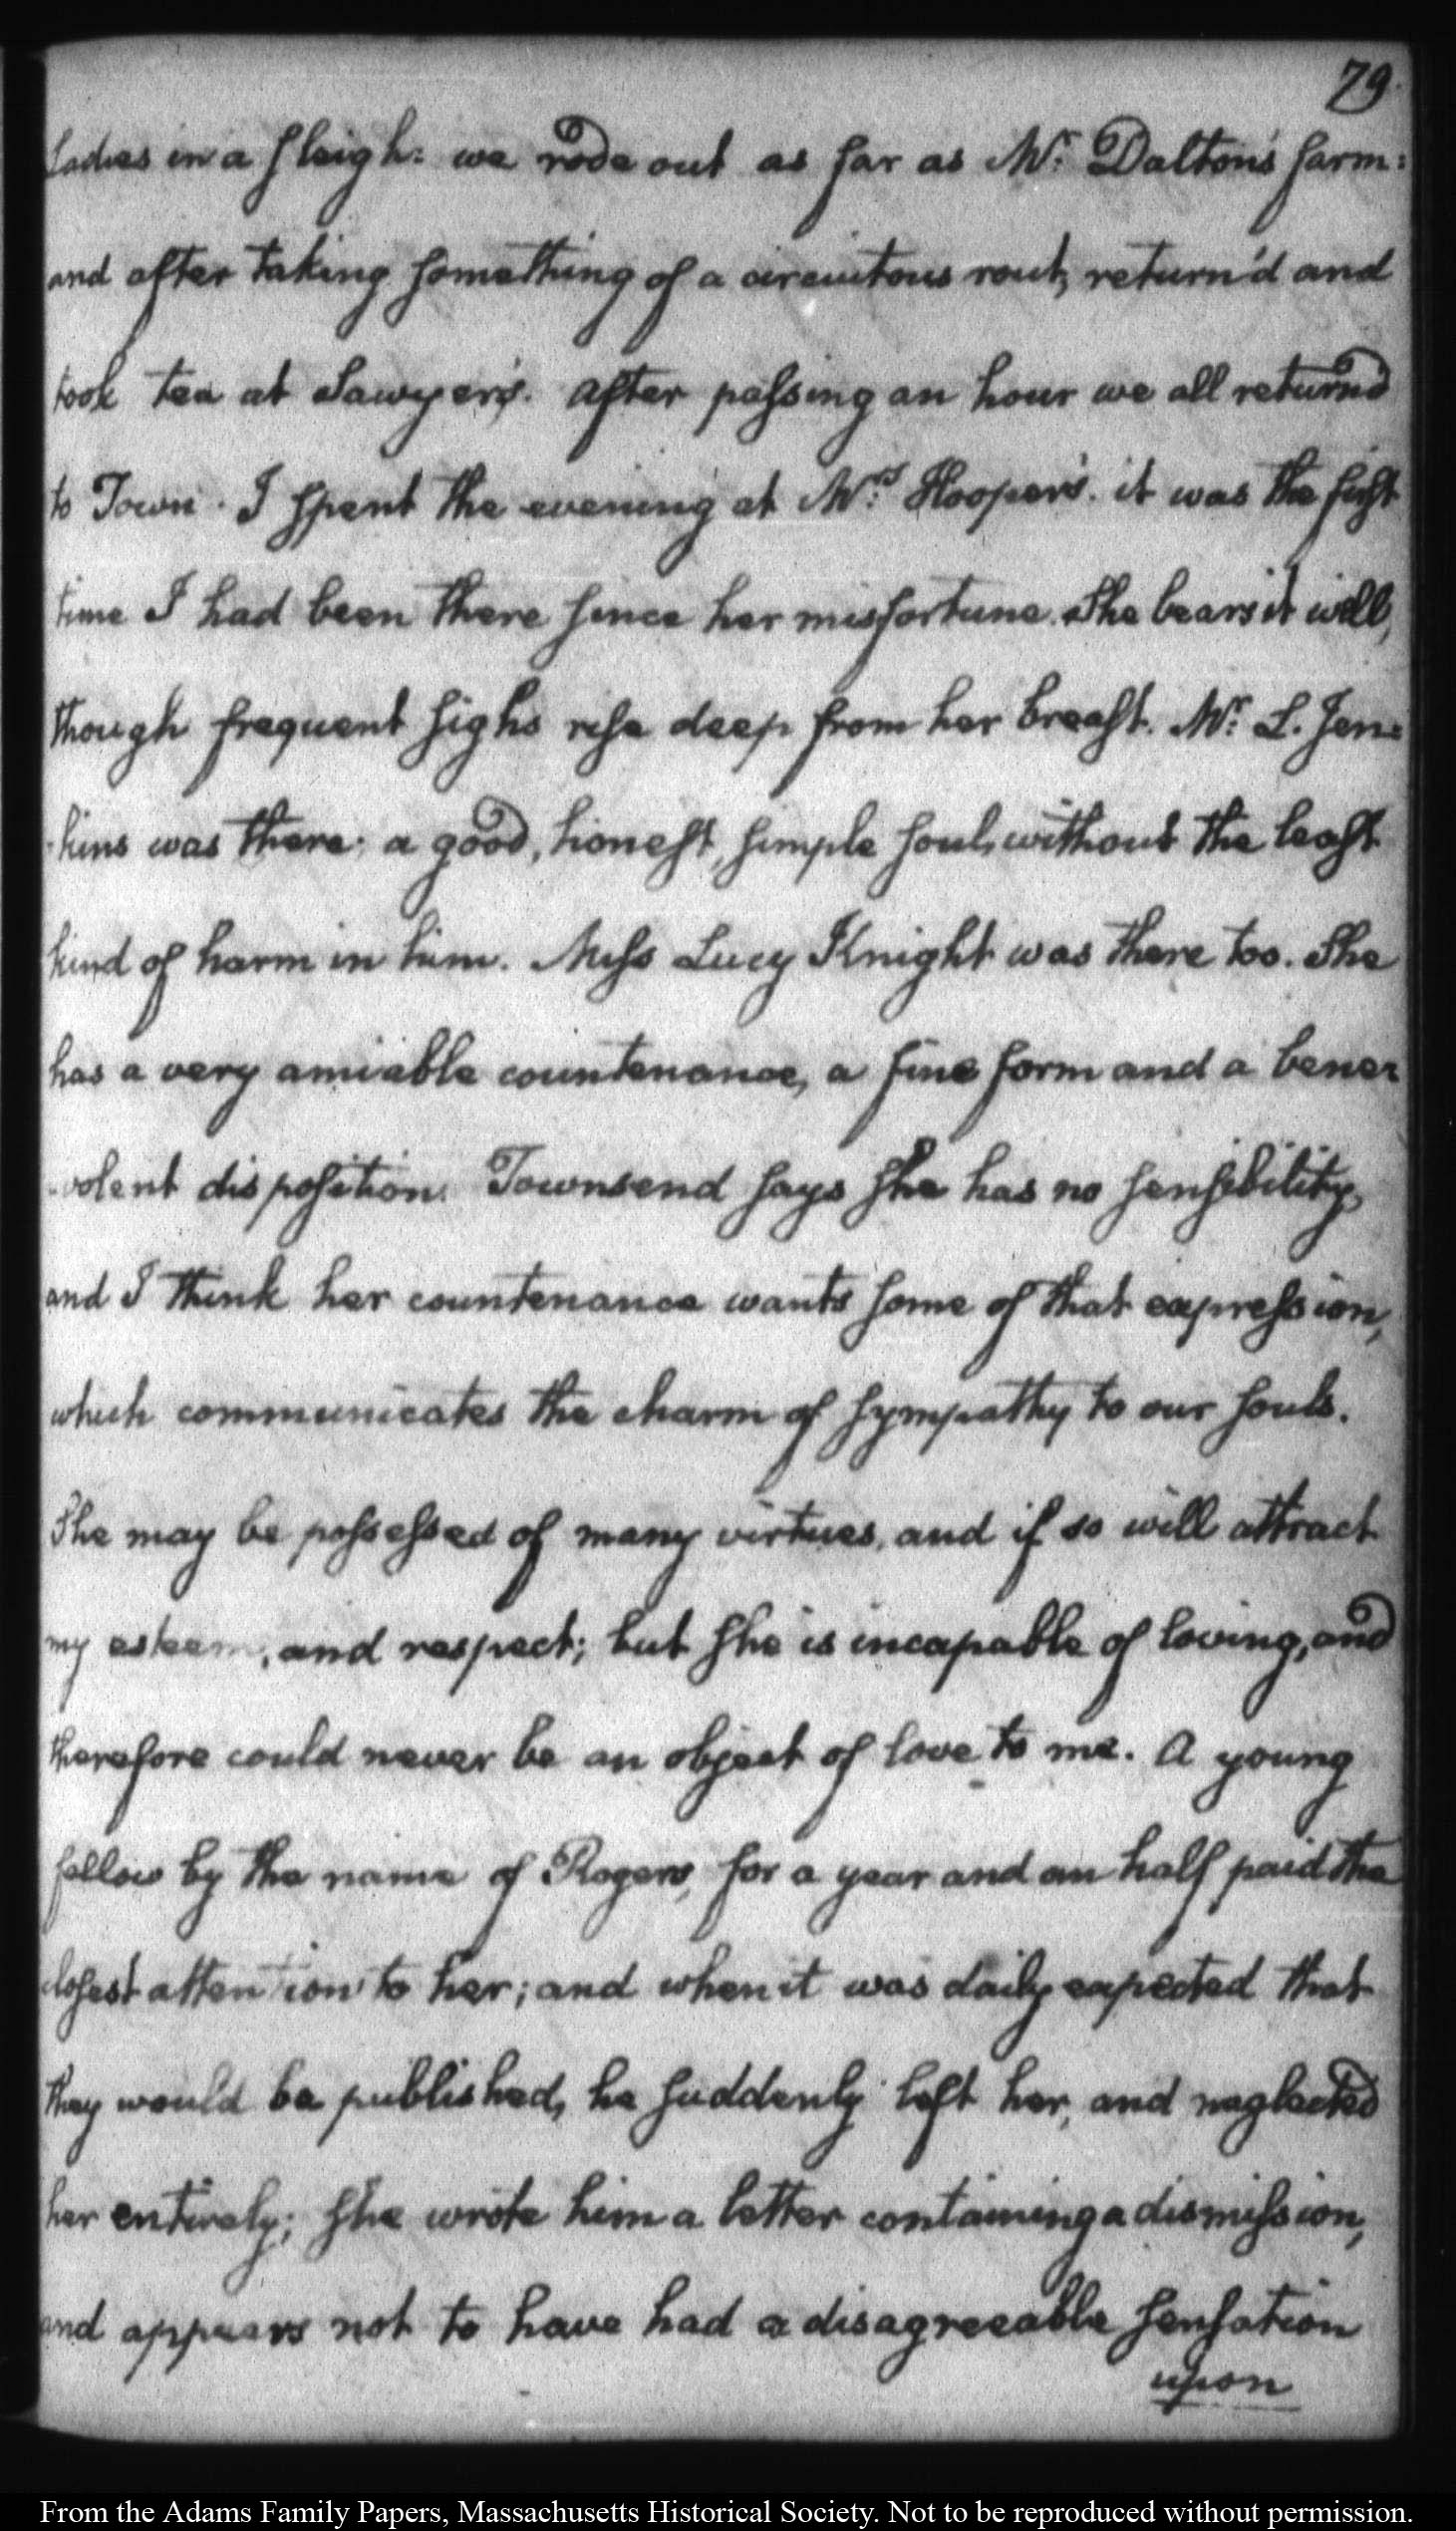 79.
Ladies in a sleigh: we rode out as far as Mr. Dalton's farm:
and after taking something of a circuitous rout, return'd and
took tea at Sawyer's. After passing an hour we all returnd
to Town. I spent the evening at Mrs. Hooper's. it was the first
time I had been there since her misfortune. She bears it well,
though frequent sighs rise deep from her breast. Mr. L. Jen:
:kins was there: a good, honest, simple soul, without the least
kind of harm in him. Miss Lucy Knight was there too. She
has a very amiable countenance, a fine form and a bene:
:volent disposition. Townsend says she has no sensibility,
and I think her countenance wants some of that expression,
which communicates the charm of sympathy to our souls.
She may be possessed of many virtues, and if so will attract
my esteem, and respect; but she is incapable of loving, and
therefore could never be an object of love to me. A young
fellow by the name of Rogers, for a year and an half paid the
closest attention to her; and when it was daily expected that
they would be published, he suddenly left her, and neglected
her entirely; she wrote him a letter containing a dismission,
and appears not to have had a disagreeable sensation
upon
From the Adams Family Papers, Massachusetts Historical Society. Not to be reproduced without permission.